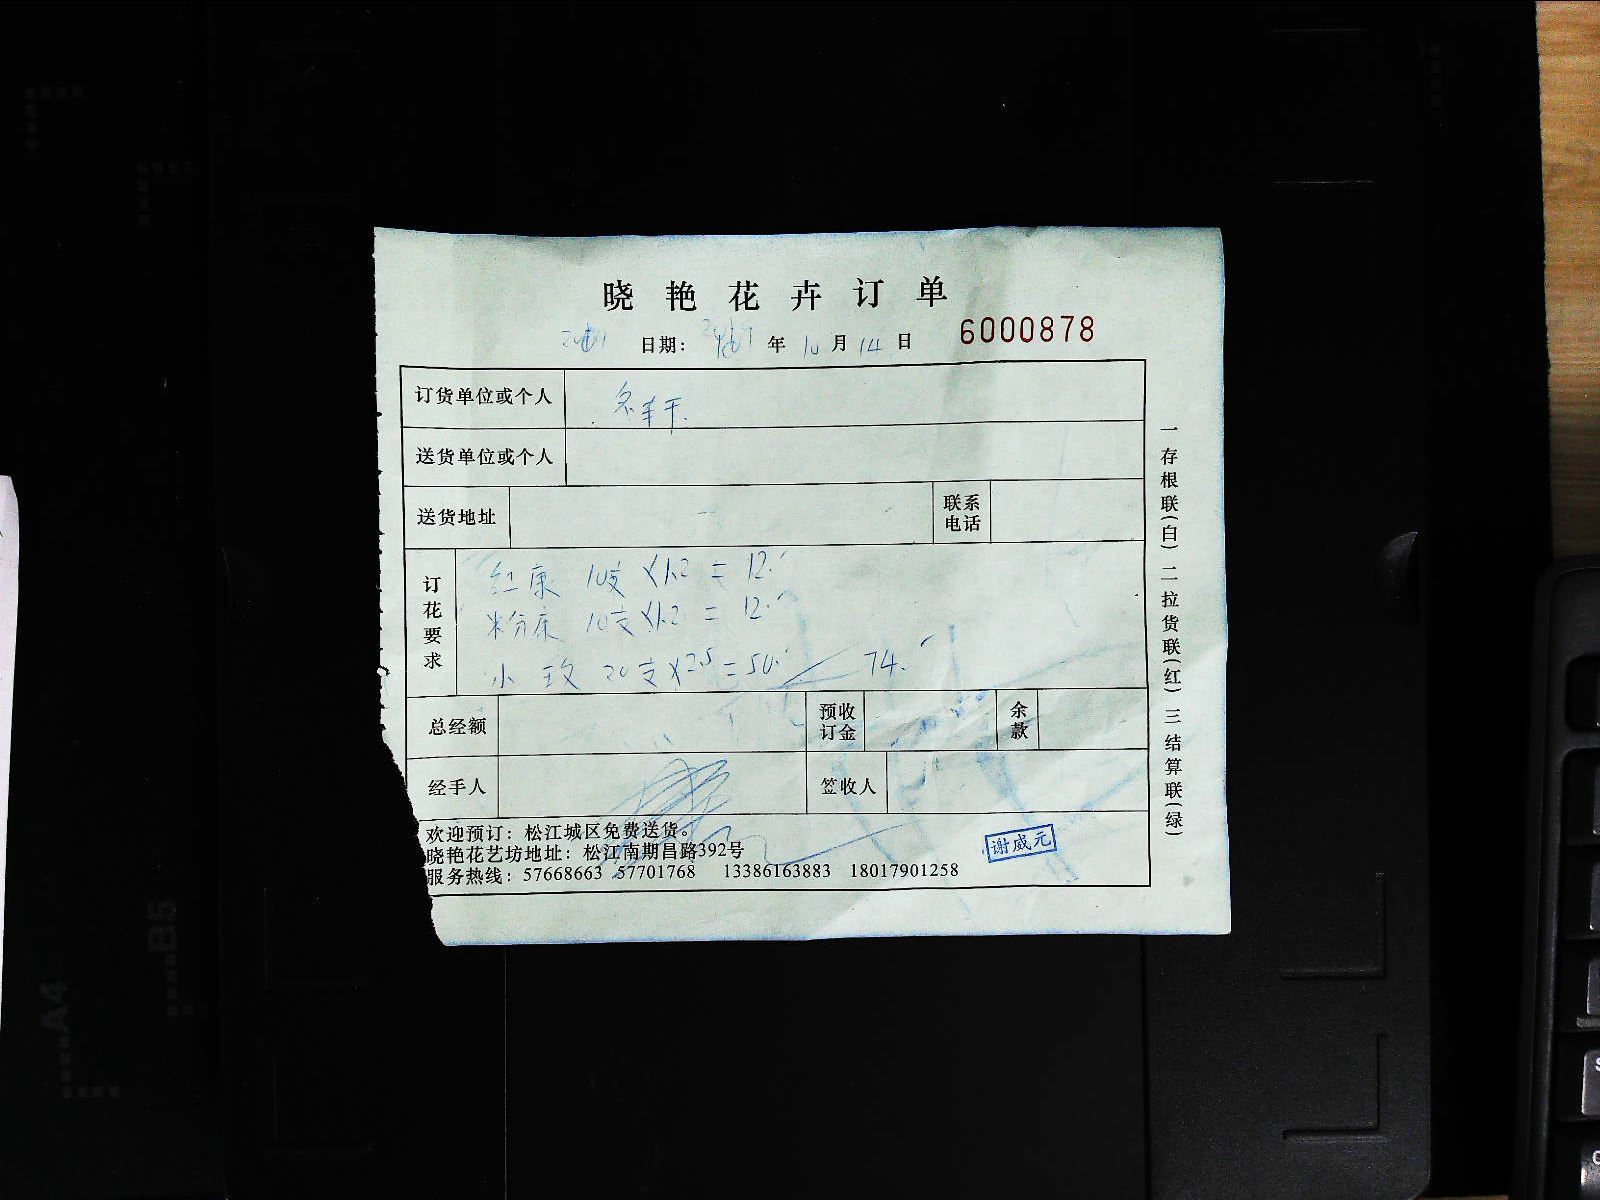 晓艳花卉订单
日期： 年 10 月 14 日 6000878
订货单位或个人
送货单位或个人
送货地址 联系电话
订花要求
红康 10支×1.2 = 12.
粉康 10支×1.2 = 12.
小玫 20支×2.5 = 50. 74.
总经额 预收订金 余款
经手人 签收人
欢迎预订：松江城区免费送货。
晓艳花艺坊地址：松江南期昌路392号
服务热线：57668663 57701768 13386163883 18017901258
谢威元
一存根联(白) 二拉货联(红) 三结算联(绿)
A4
B5